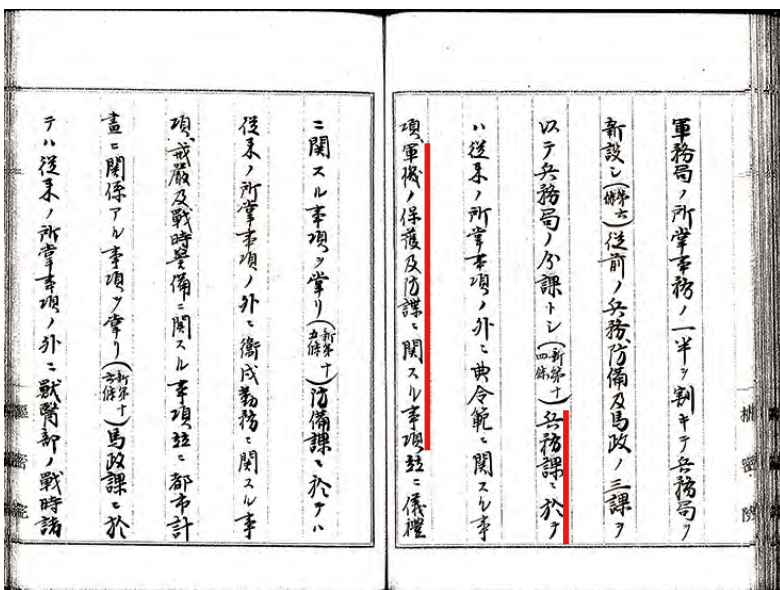 軍務局ノ所掌事務ノ一半ヲ割キテ兵務局ヲ
新設シ(第六條)従前ノ兵務、防備及馬政ノ三課ヲ
以テ兵務局ノ分課トシ(新第十四條)兵務課ニ於テ
ハ従来ノ所掌事項ノ外ニ典令範ニ関スル事
項、軍機ノ保護及防諜ニ関スル事項竝ニ儀禮
ニ関スル事項ヲ掌リ(新第十五條)防備課ニ於テハ
従来ノ所掌事項ノ外ニ衛戍勤務ニ関スル事
項、戒厳及戦時警備ニ関スル事項竝ニ都市計
畫ニ関係アル事項ヲ掌リ(新第十六條)馬政課ニ於
テハ従来ノ所掌事項ノ外ニ獣醫部ノ戦時諸
樞密院